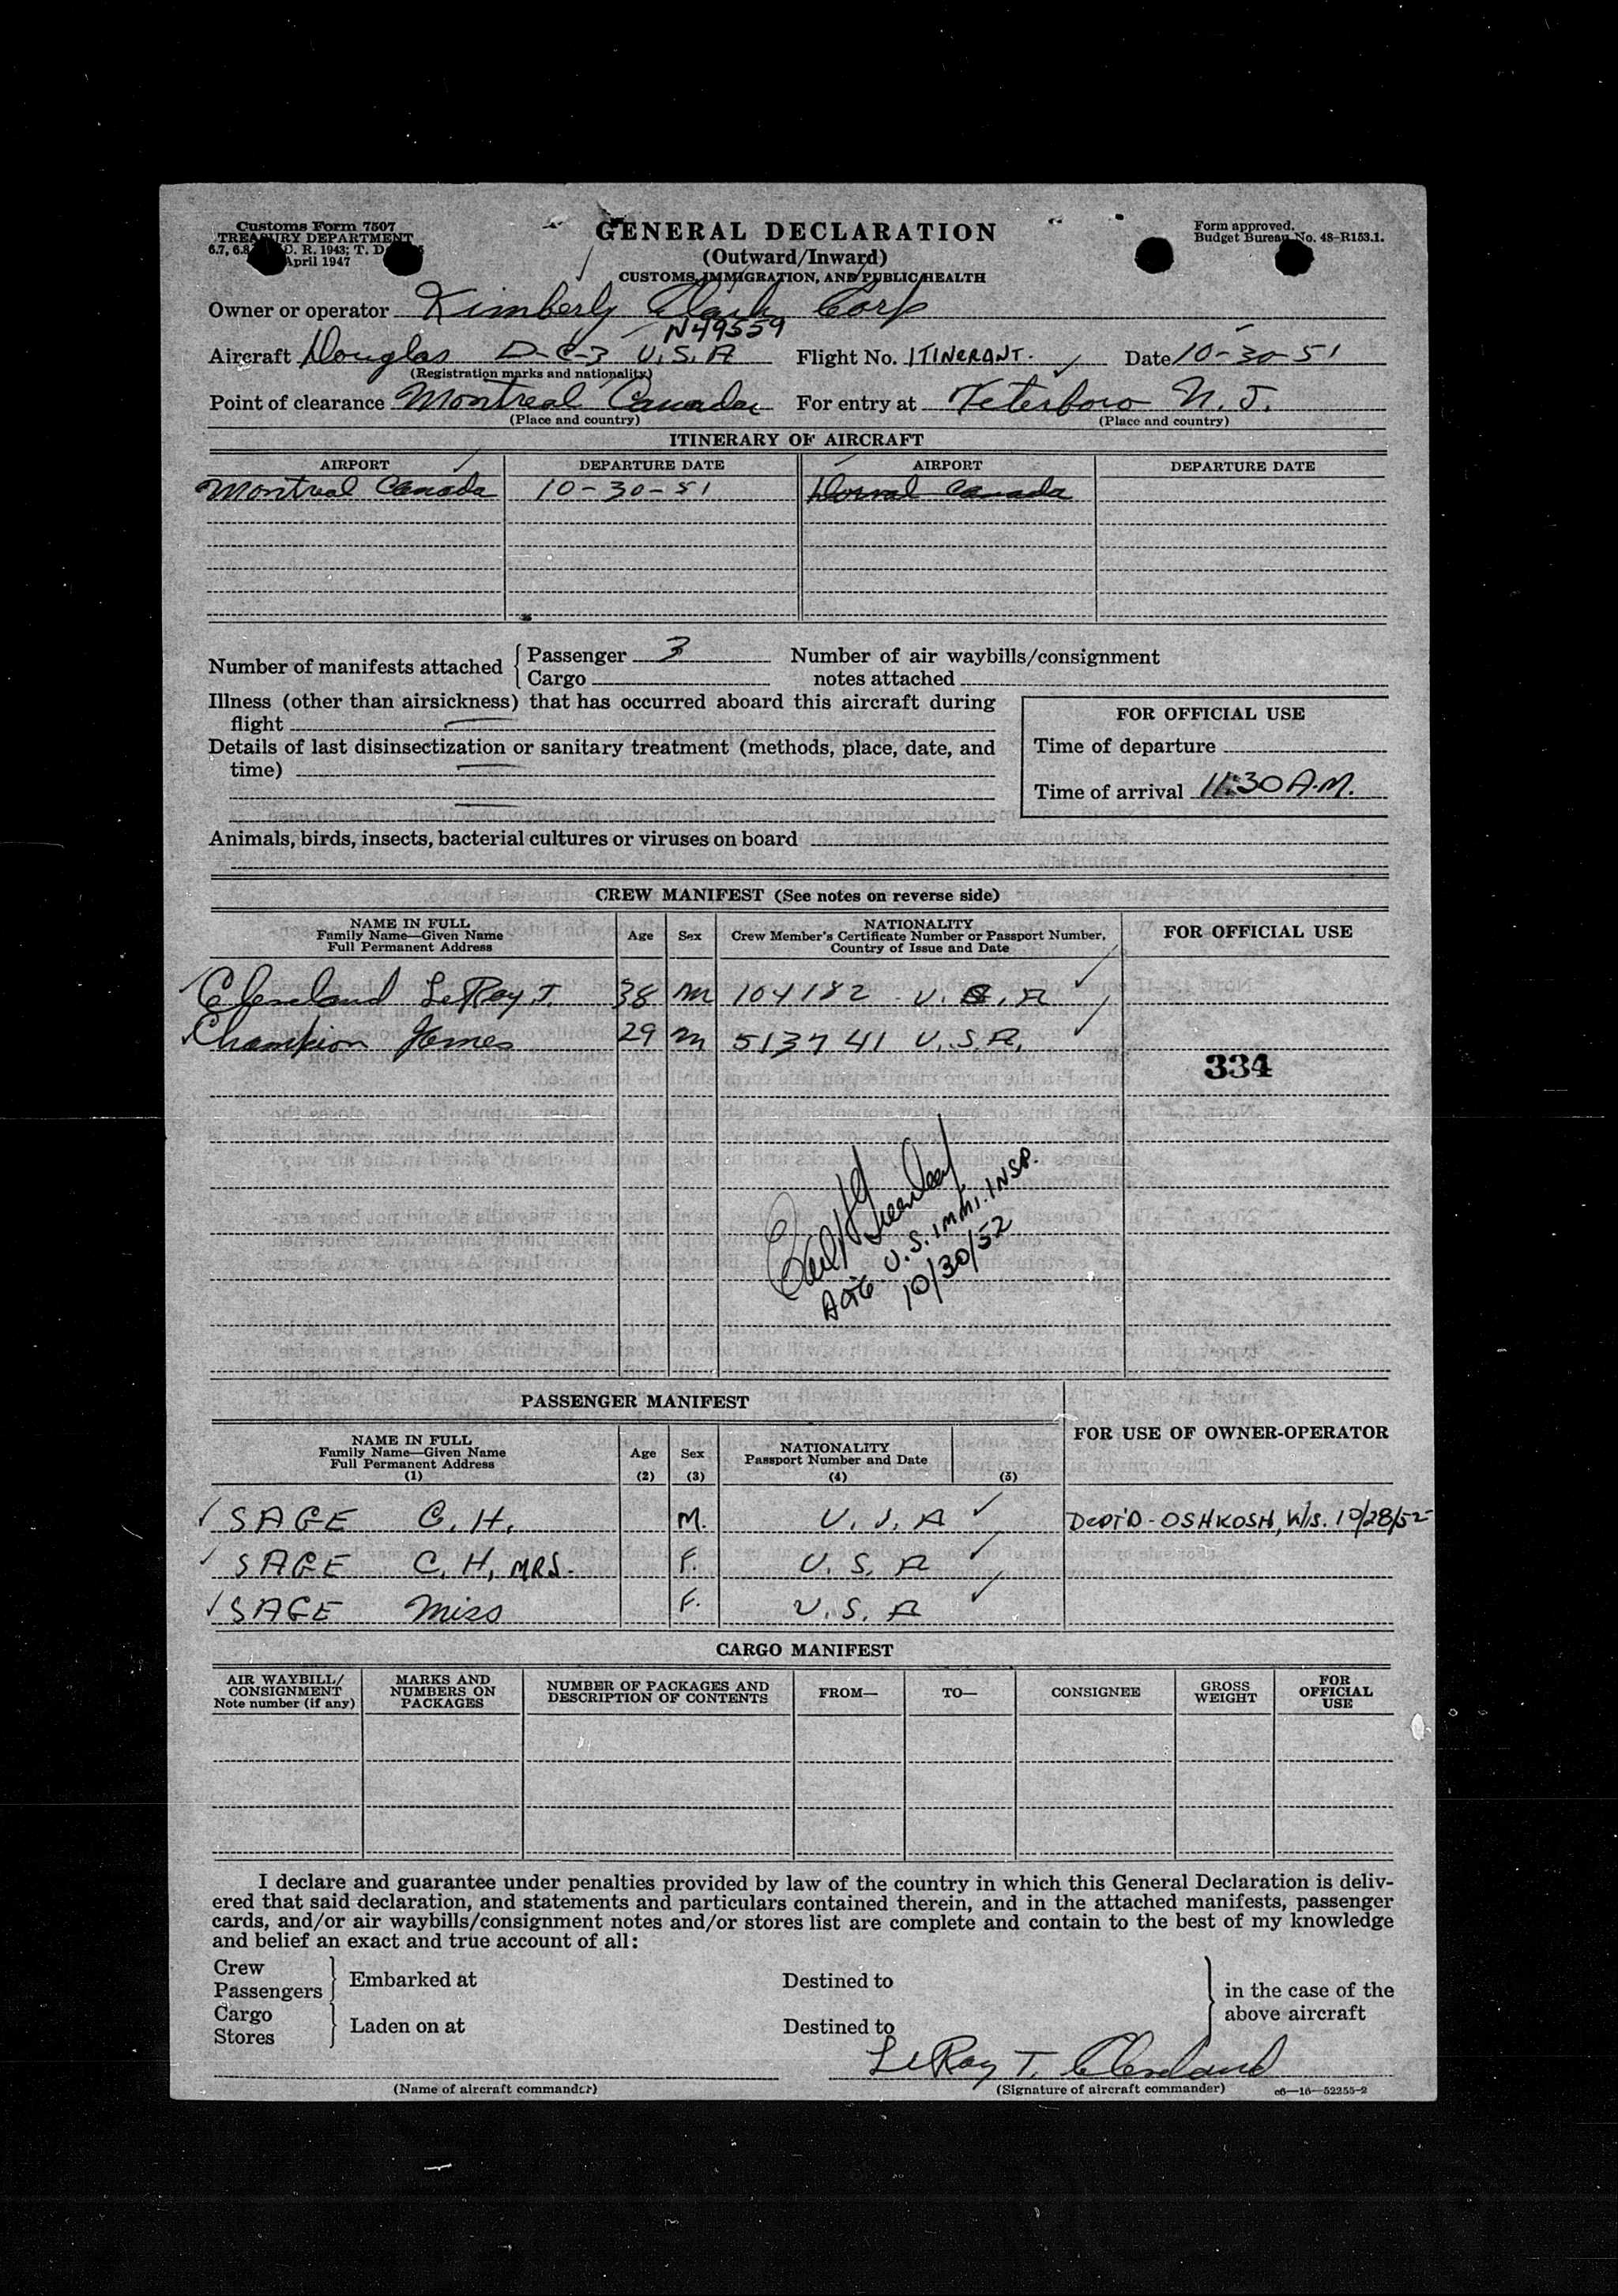 Customs Form 7507
GENERAL DECLARATION
Form approved.
TREASURY DEPARTMENT
(Outward/Inward)
Budget Bureau No. 48-R153.1.
6.7, 6.8, C. R. 1943; T. D.
April 1947
CUSTOMS, IMMIGRATION, AND PUBLIC HEALTH
Owner or operator Kimberly Clark Corp
N49559
Aircraft Douglas D-C-3 U.S.A Flight No. ITINERANT. Date 10-30-51
(Registration marks and nationality)
Point of clearance Montreal Canada For entry at Teterboro N.J.
(Place and country) (Place and country)
ITINERARY OF AIRCRAFT
AIRPORT DEPARTURE DATE AIRPORT DEPARTURE DATE
Montreal Canada 10-30-51 Dorval Canada
Number of manifests attached Passenger 3 Number of air waybills/consignment
Cargo notes attached
Illness (other than airsickness) that has occurred aboard this aircraft during
flight
FOR OFFICIAL USE
Details of last disinsectization or sanitary treatment (methods, place, date, and
time)
Time of departure
Time of arrival 11:30 A.M.
Animals, birds, insects, bacterial cultures or viruses on board
CREW MANIFEST (See notes on reverse side)
NAME IN FULL
Family Name—Given Name
Full Permanent Address
Age Sex
NATIONALITY
Crew Member's Certificate Number or Passport Number,
Country of Issue and Date
FOR OFFICIAL USE
Cleveland LeRoy T. 38 M 104182 U.S.A
Champion James 29 M 513741 U.S.A.
334
U.S. IMMI. INSP.
10/30/52
PASSENGER MANIFEST
FOR USE OF OWNER-OPERATOR
NAME IN FULL
Family Name—Given Name
Full Permanent Address
(1)
Age
(2)
Sex
(3)
NATIONALITY
Passport Number and Date
(4) (5)
SAGE C. H. M. U.S.A DEPT'D - OSHKOSH, WIS. 10/28/52
SAGE C. H, MRS. F. U.S.A
SAGE Miss F. U.S.A
CARGO MANIFEST
AIR WAYBILL/
CONSIGNMENT
Note number (if any)
MARKS AND
NUMBERS ON
PACKAGES
NUMBER OF PACKAGES AND
DESCRIPTION OF CONTENTS
FROM— TO— CONSIGNEE
GROSS
WEIGHT
FOR
OFFICIAL
USE
I declare and guarantee under penalties provided by law of the country in which this General Declaration is deliv-
ered that said declaration, and statements and particulars contained therein, and in the attached manifests, passenger
cards, and/or air waybills/consignment notes and/or stores list are complete and contain to the best of my knowledge
and belief an exact and true account of all:
Crew
Passengers
Embarked at Destined to
in the case of the
above aircraft
Cargo
Stores
Laden on at Destined to
LeRoy T. Cleveland
(Name of aircraft commander) (Signature of aircraft commander) c6—16—52255-2